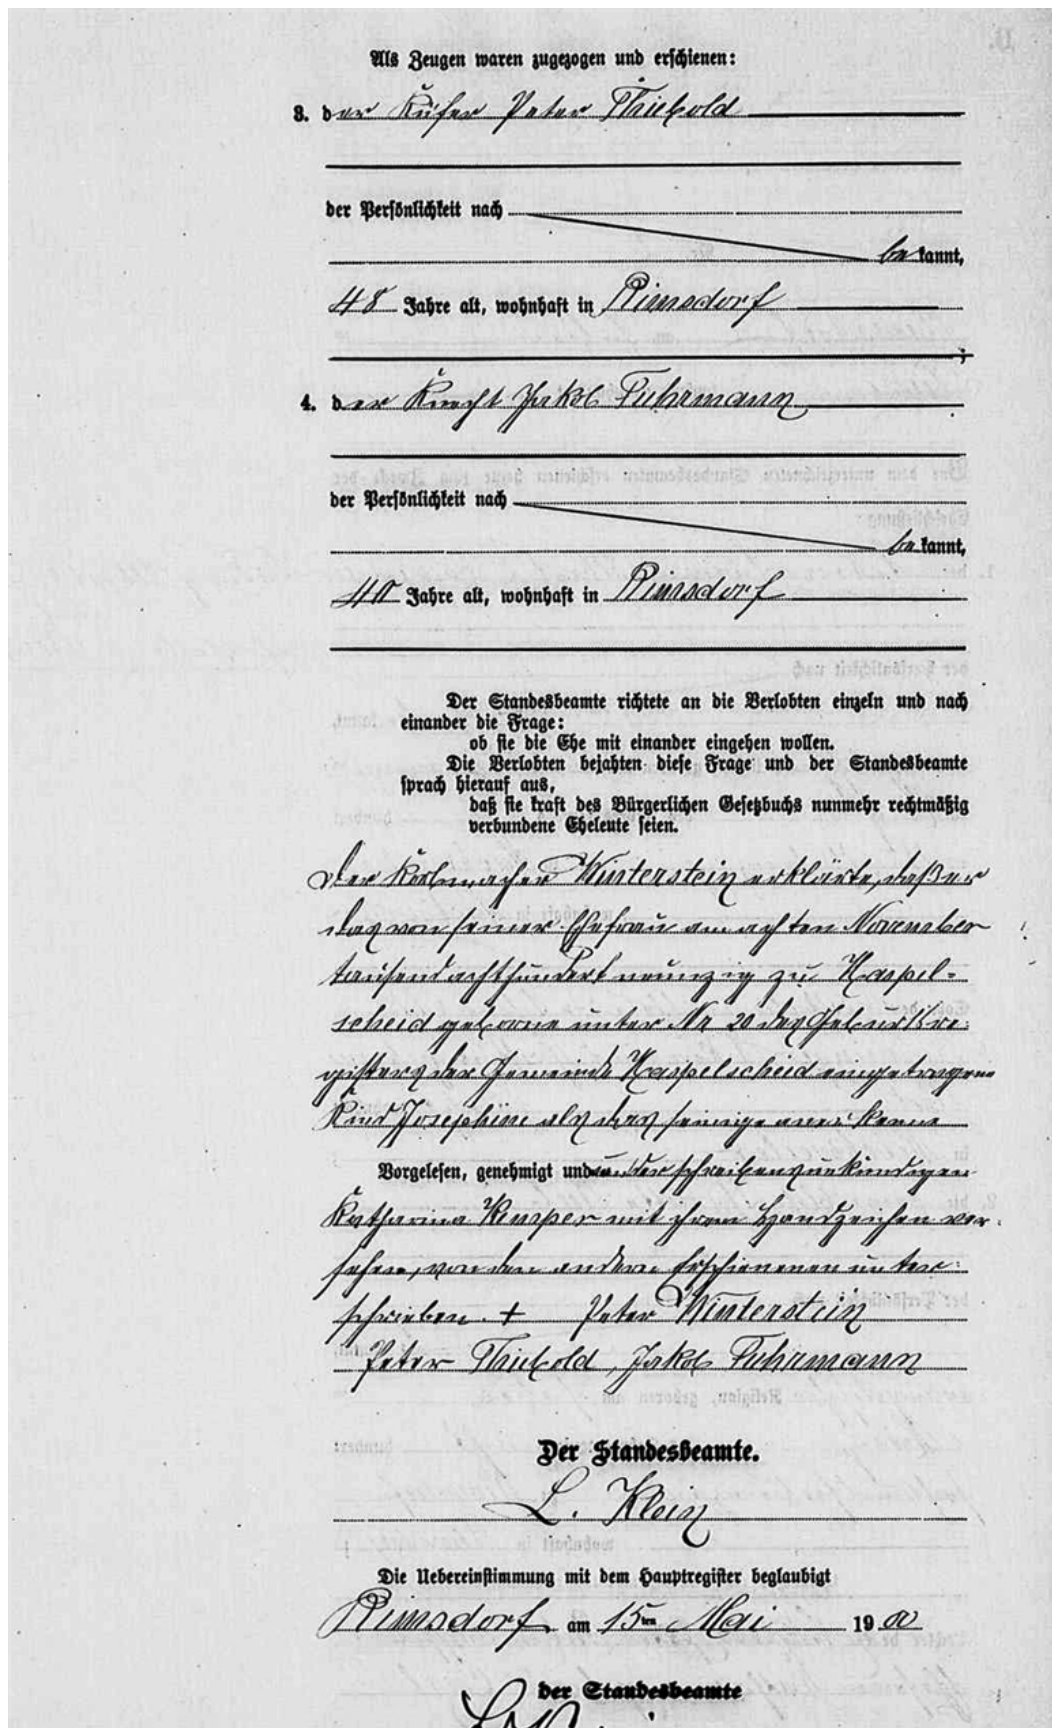 Als Zeugen waren zugezogen und erschienen:
3. der Küfer Peter Thiebold
der Persönlichkeit nach
bekannt,
48 Jahre alt, wohnhaft in Rimsdorf
;
4. der Knecht Jakob Fuhrmann
der Persönlichkeit nach
bekannt,
40 Jahre alt, wohnhaft in Rimsdorf
Der Standesbeamte richtete an die Verlobten einzeln und nach
einander die Frage:
ob sie die Ehe mit einander eingehen wollen.
Die Verlobten bejahten diese Frage und der Standesbeamte
sprach hierauf aus,
daß sie kraft des Bürgerlichen Gesetzbuchs nunmehr rechtmäßig
verbundene Eheleute seien.
Der Korbmacher Winterstein erklärte, daß er
das von seiner Ehefrau am achten November
tausend achthundert neunzig zu Haspel=
scheid geborne unter Nr 20 des Geburtsre=
gisters der Gemeinde Haspelscheid eingetragene
Kind Josephine als das seinige anerkenne
Vorgelesen, genehmigt und von der schreibensunkundigen
Katharina Kemper mit ihrem Handzeichen ver=
sehen, von den andern Erschienenen unter=
schrieben. + Peter Winterstein
Peter Thiebold, Jakob Fuhrmann
Der Standesbeamte.
L. Klein
Die Uebereinstimmung mit dem Hauptregister beglaubigt
Rimsdorf am 15ten Mai 1900
der Standesbeamte